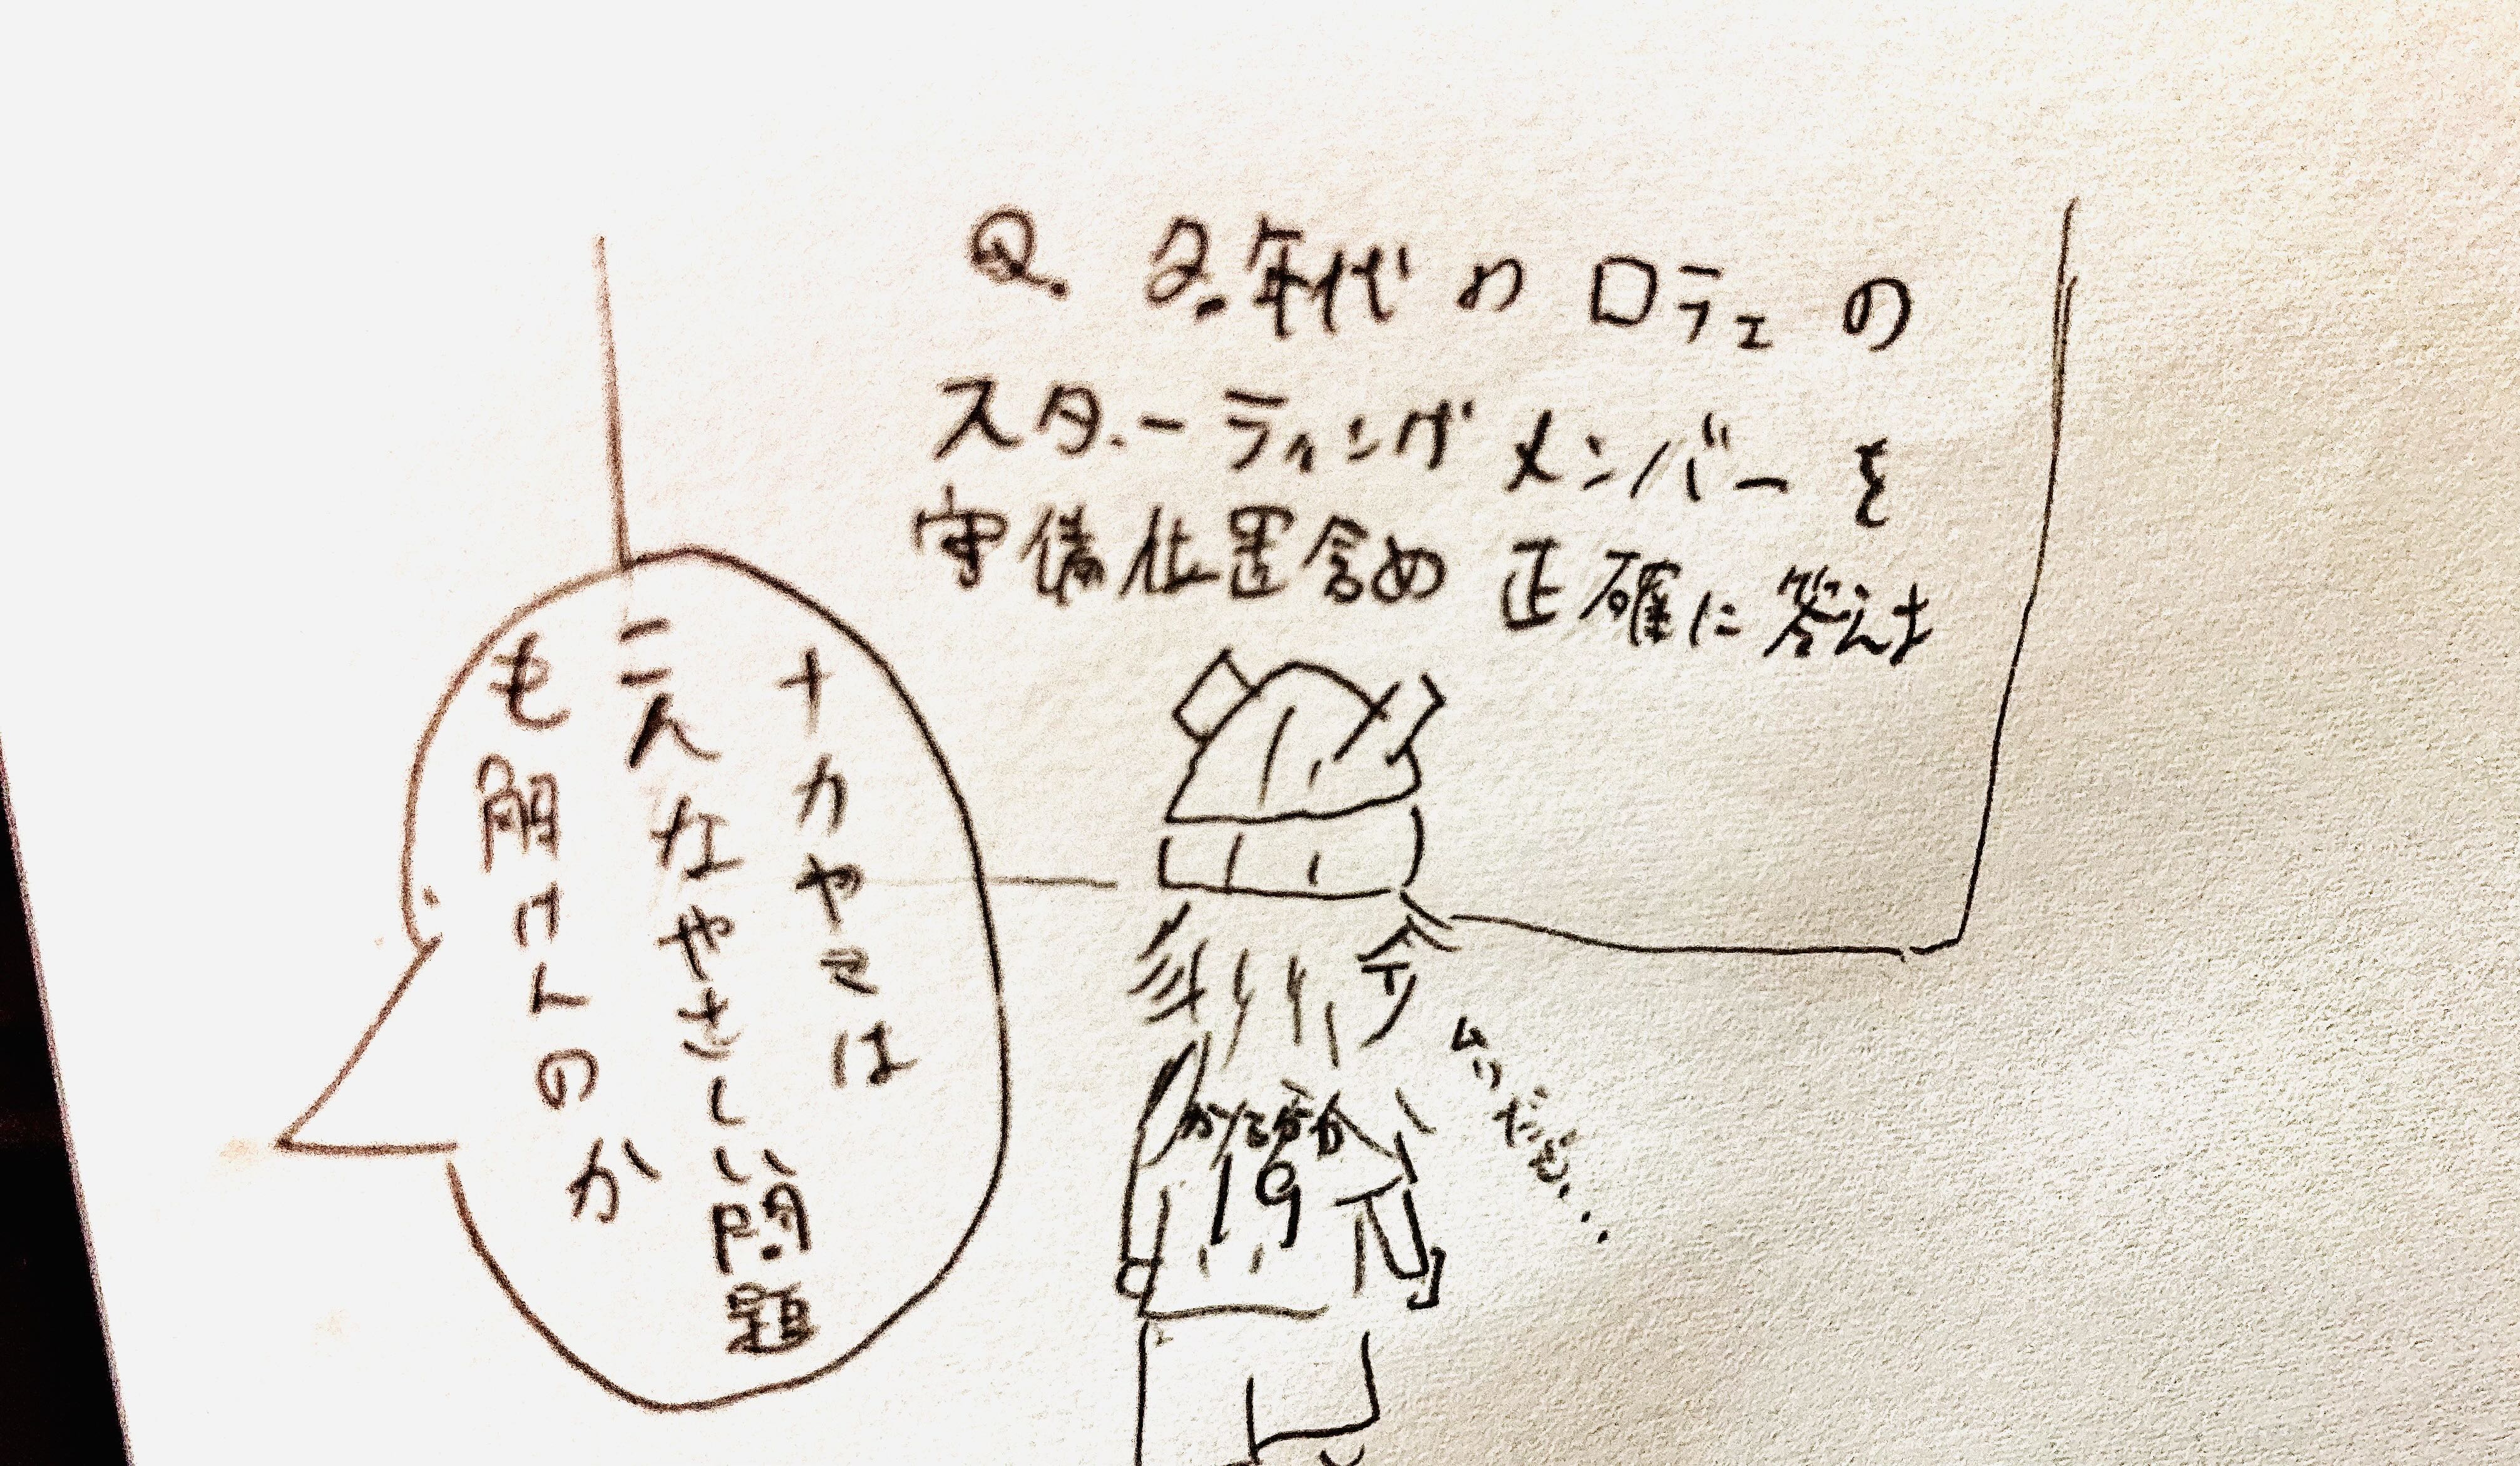 Q. 2.年代のロテェの
スターティングメンバーを
守備位置含め 正確に答えよ
ナカヤマは
こんなやさしい問題
も解けんのか
ムリだぜ..
19